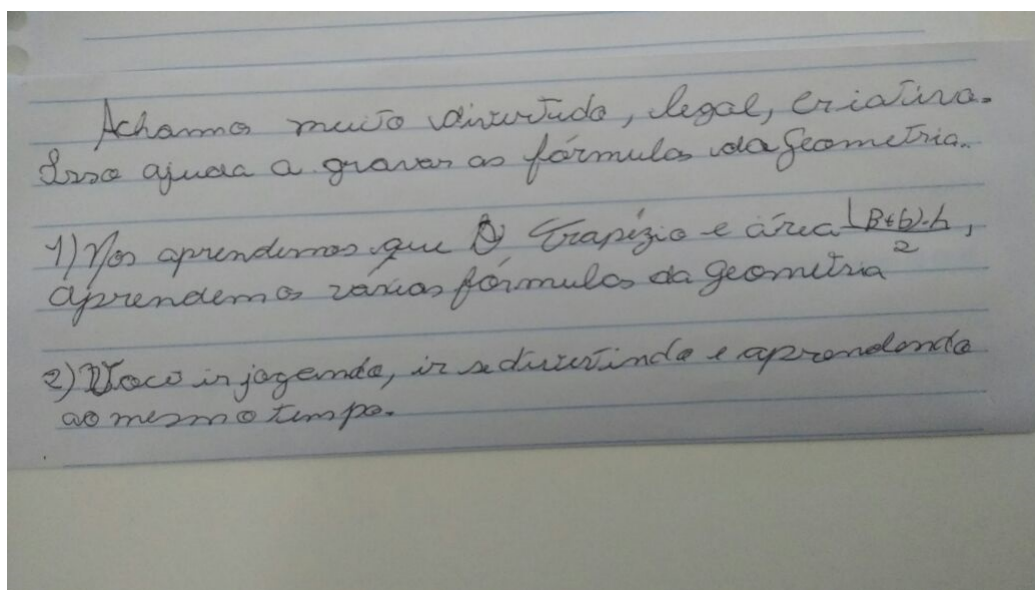 Achamos muito divertido, legal, criativo.
Isso ajuda a gravar as fórmulas da Geometria.
1) Nos aprendemos que O trapézio e área (B+b)·h/2,
aprendemos várias fórmulas da geometria
2) Você ir jogando, ir se divertindo e aprendendo
ao mesmo tempo.